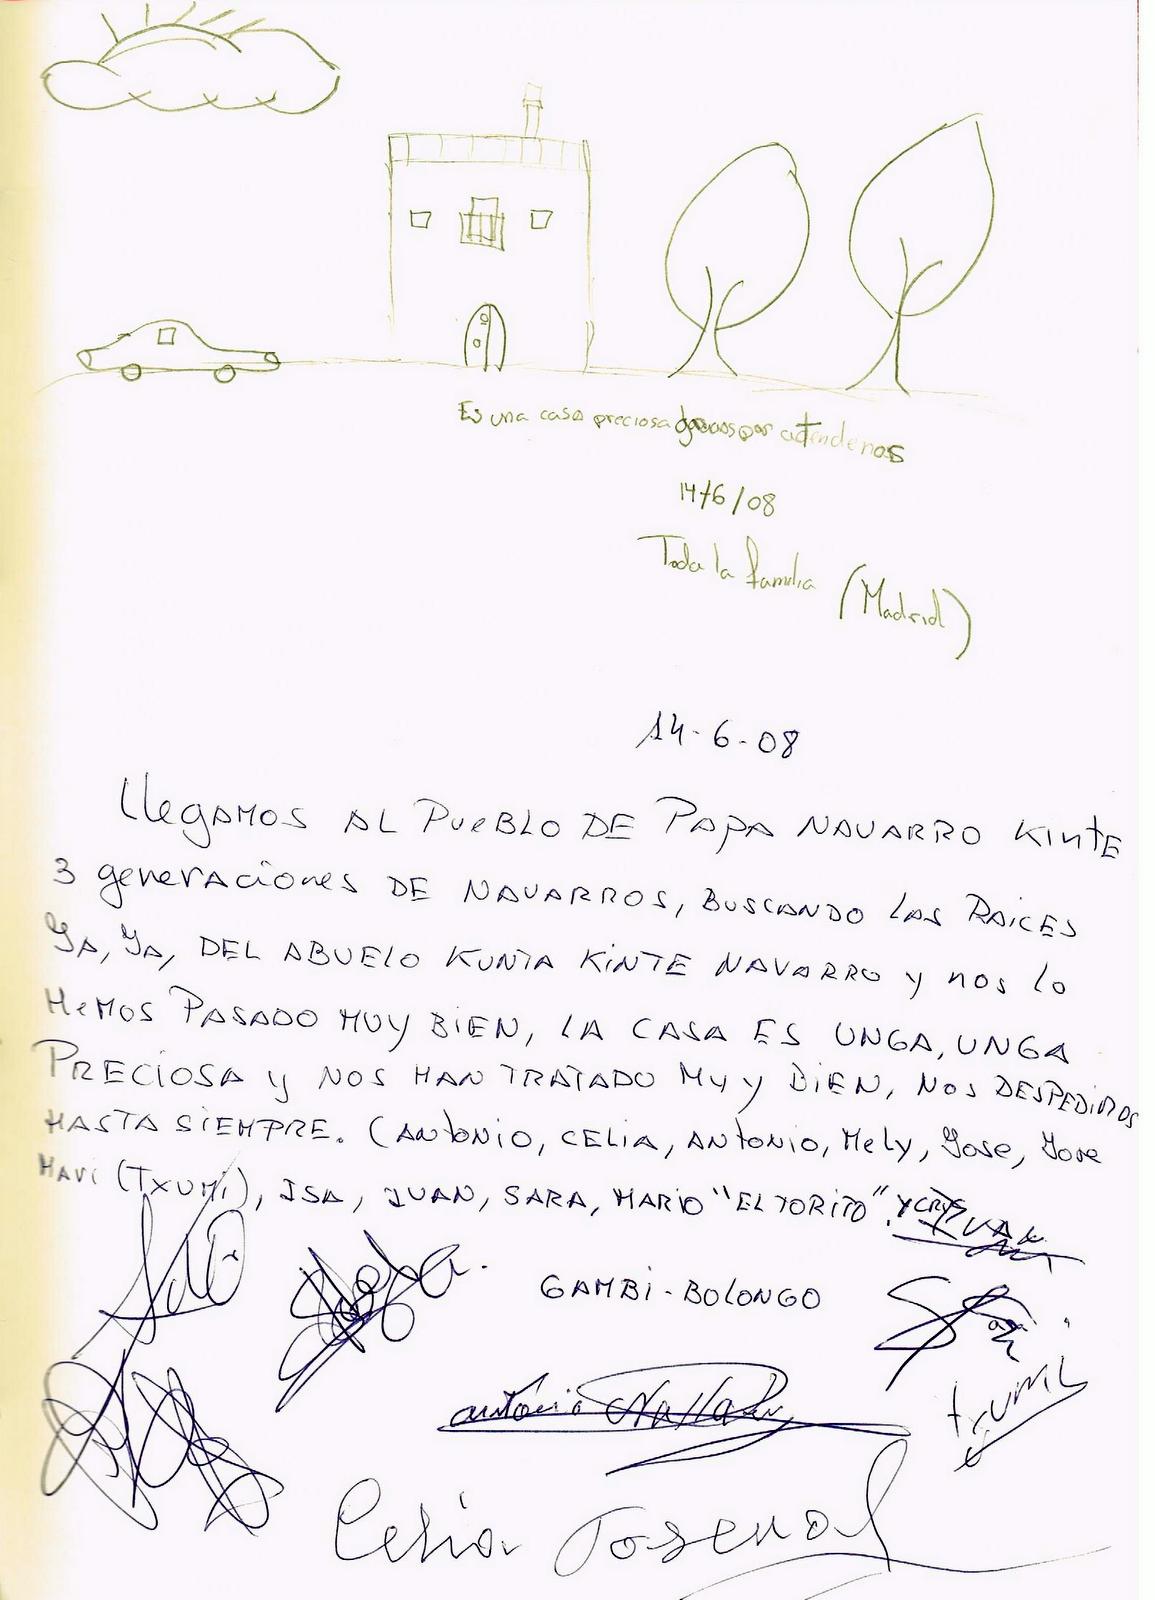 Es una casa preciosa gracias por atendenos
14/6/08
Toda la familia (Madrid)
14-6-08
Llegamos AL PUeBLO DE PAPA NAVARRO KintE
3 generaciones DE NAVARROS, BUSCANDO LAS RAICES
YA, YA, DEL ABUELO KUNTA KINTE NAVARRO y nos lo
HeMOS PASADO MUY BIEN, LA CASA ES UNGA, UNGA
PRECIOSA y NOS HAN TRATADO MUY BIEN, NOS DESPEDIMOS
HASTA SIEMPRE. (ANtONIO, CELIA, ANtONIO, Mely, Jose, Jose
MAVI (TXUMI), ISA, JUAN, SARA, MARIO "EL TORITO". Y CRIS
GAMBI-BOLONGO
antonio Navarro
txumi
Celia